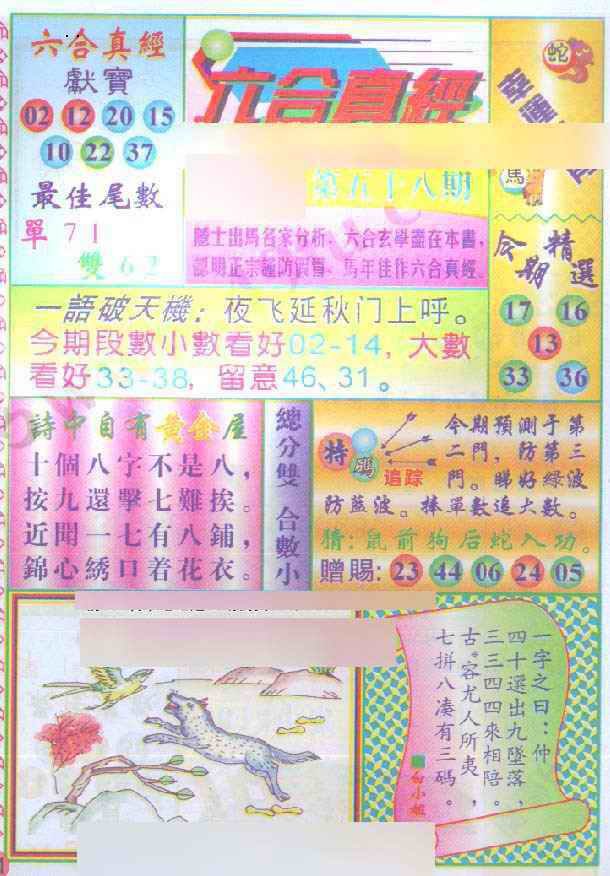 六合真經
獻寶
02 12 20 15
10 22 37
最佳尾數
單 71
雙 62
六合真經
第五十八期
隱士出馬名家分析、六合玄學盡在本書，
認明正宗謹防假冒、馬年佳作六合真經。
蛇
馬
今期精選
17 16
13
33 36
一語破天機：夜飞延秋门上呼。
今期段數小數看好02-14，大數
看好33-38，留意46、31。
詩中自有黄金屋
十個八字不是八，
按九還擊七難挨。
近聞一七有八鋪，
錦心綉口着花衣。
總分雙 合數小
特碼
追踪
今期預測于第
二門，防第三
門。睇好綠波
防藍波。捧單數追大數。
猜：鼠前狗后蛇入功。
赠賜：23 44 06 24 05
一字之曰：仲
四十選出九墜落，
三三四四來相陪。
古。容尤人所夷，
七拼八凑有三碼。
白小姐